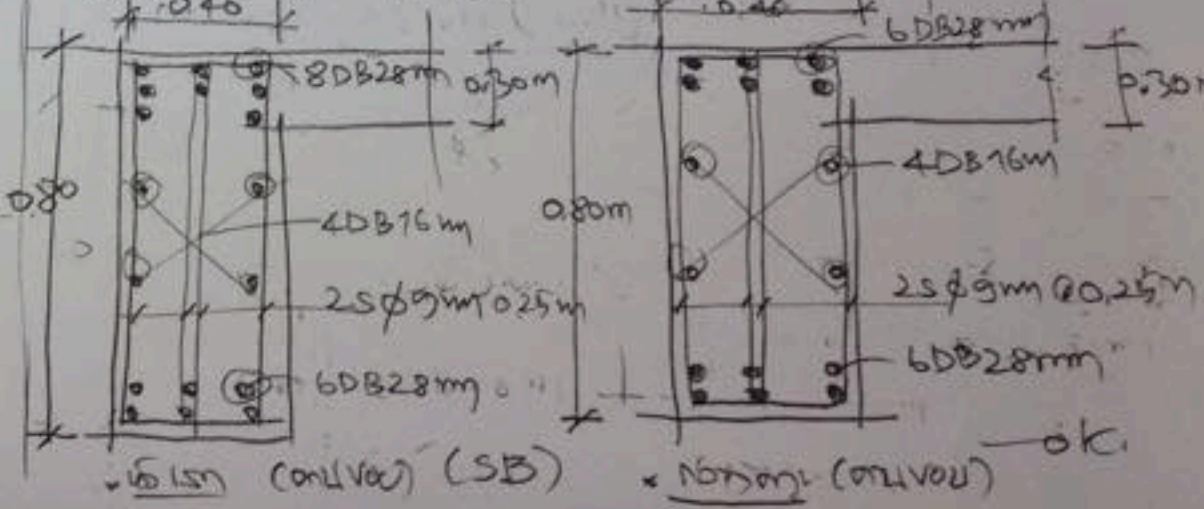 0.40
8DB28mm
0.30m
0.80
4DB16mm
2Sφ9mm 0.25m
6DB28mm
(คานขอบ) (SB)
0.40
6DB28mm
0.30m
4DB16mm
0.80m
2Sφ9mm @0.25m
6DB28mm
OK.
(คานขอบ)